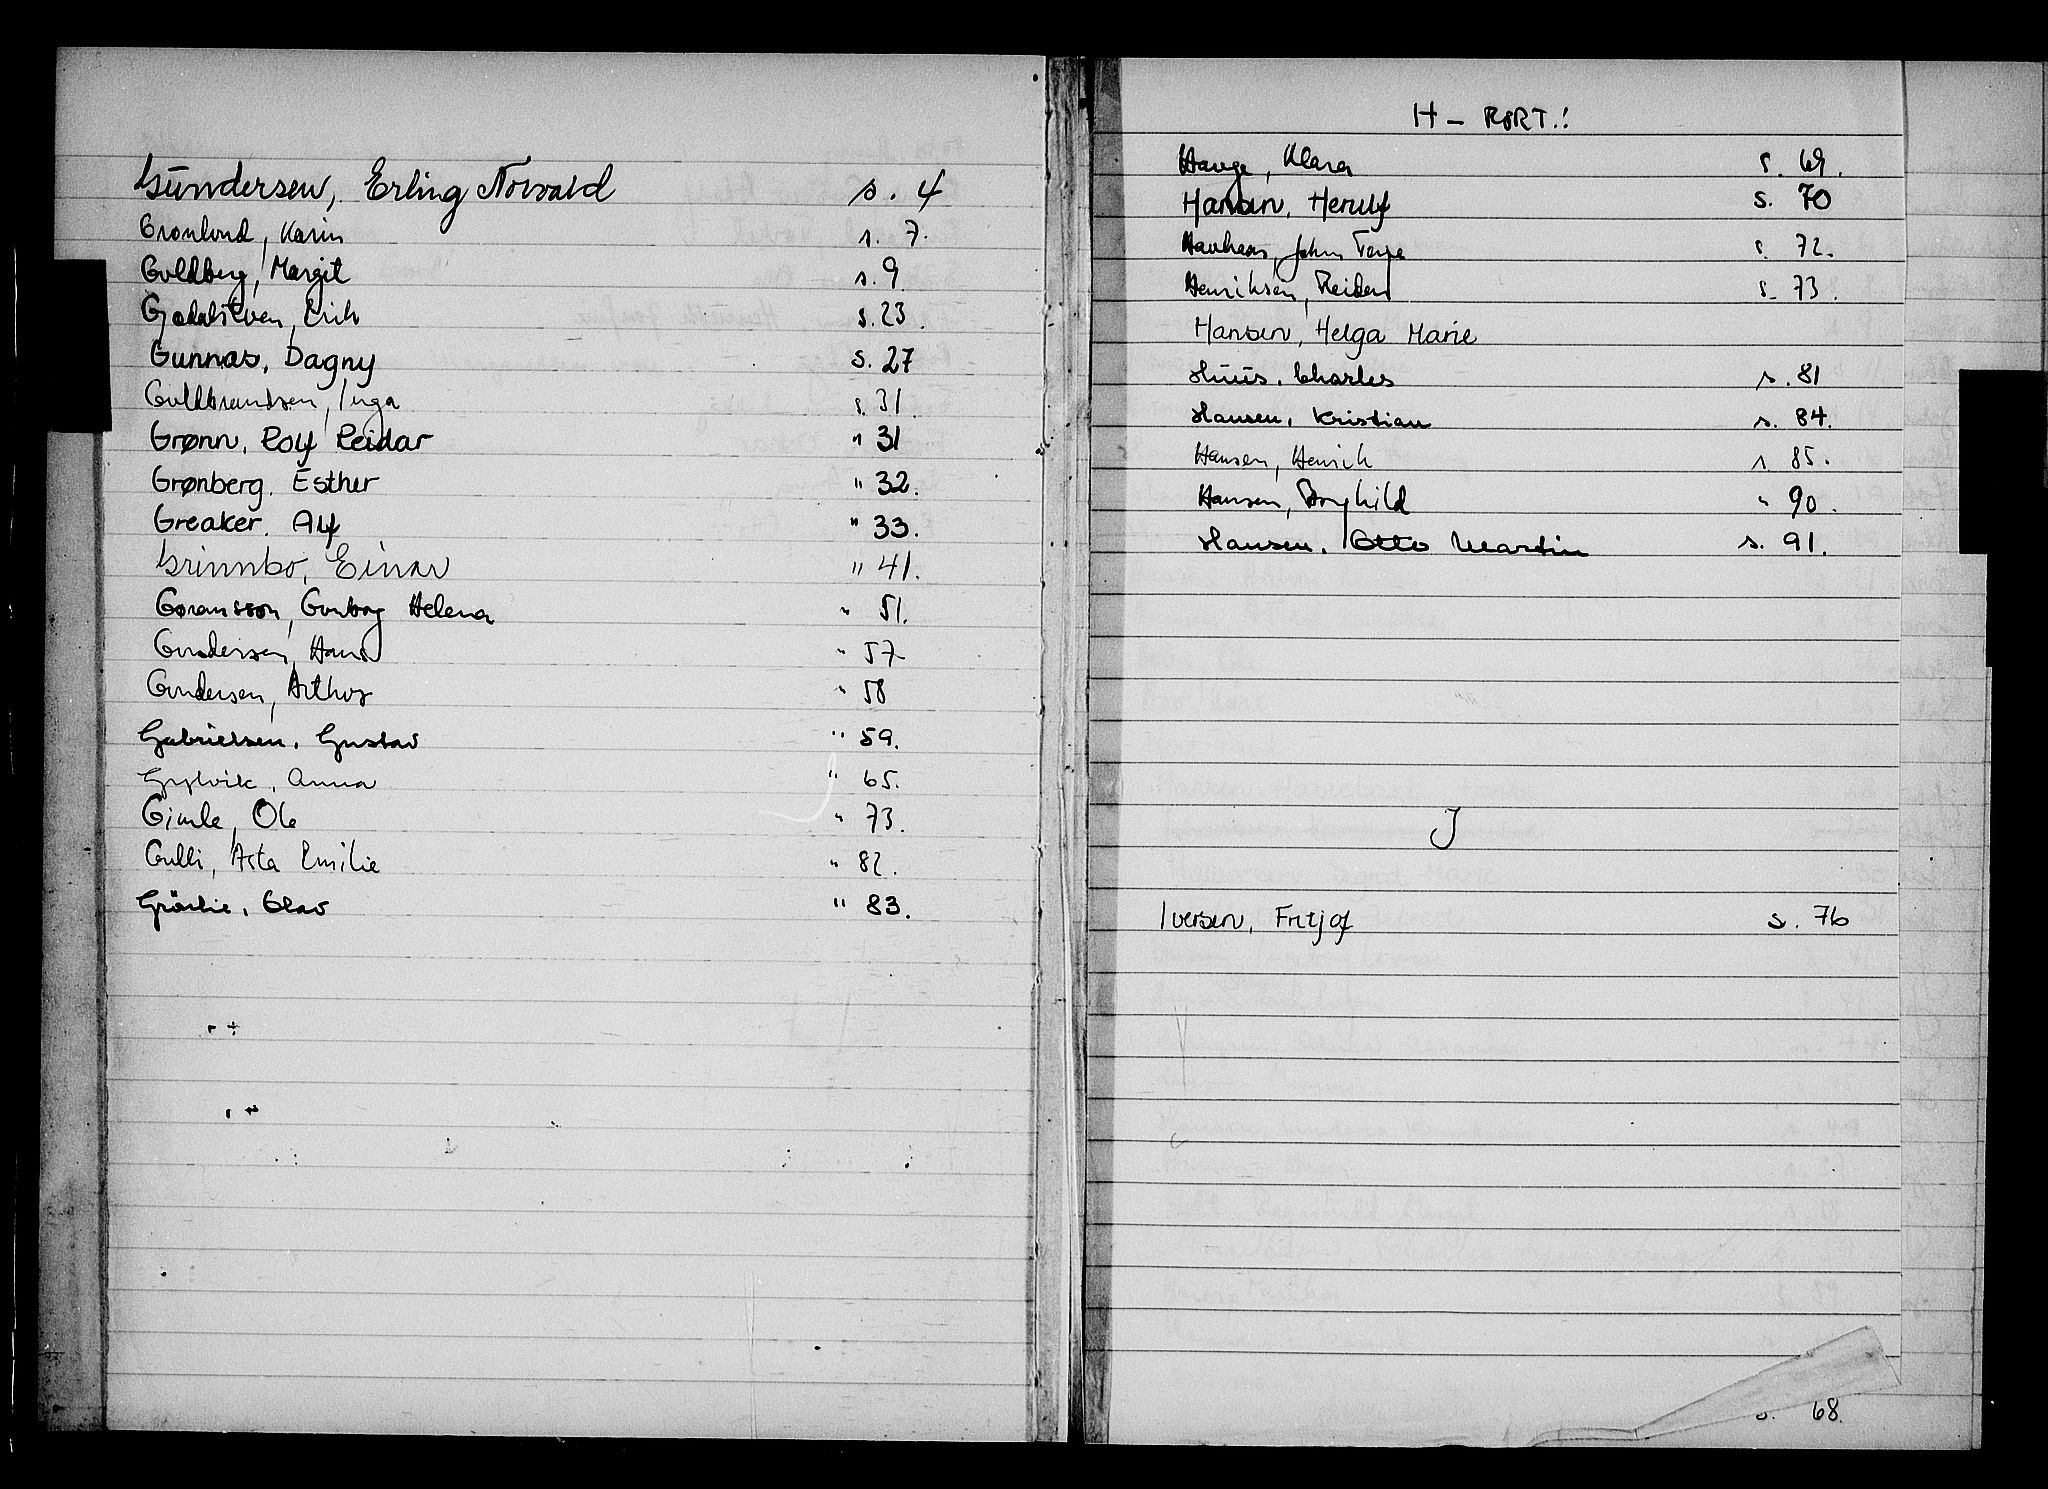 Gundersen, Erling Norvald s. 4
Grønlund, Karin s. 7.
Guldberg, Margit s. 9.
Erik s. 23.
Gunnas, Dagny s. 27
Guldbrandsen, Inga s. 31.
Grønn, Rolf Reidar " 31
Grønberg. Esther " 32.
Greaker. Alf " 33.
Grinnbo, Einar " 41.
Gøransson, Gunborg Helena " 51.
Gundersen, Hans " 57
Gundersen, Arthur " 58
Gabrielsen. Gustav " 59.
Anna " 65.
Gimle, Ole " 73.
Gulli, Asta Emilie " 82.
Grörlie. Olav " 83.
H - FORT.!
Hauge, Klara s. 69.
Hansen. Herulf s. 70
John Terje s. 72.
Henriksen, Reidar s. 73.
Hansen, Helga Marie
Huus. Charles s. 81
Hansen. Kristian s. 84.
Hansen, Henrich s 85.
Hansen, Borghild " 90.
Hansen. Otto Martin s. 91.
J
Iversen, Fritjof s. 76
s. 68.